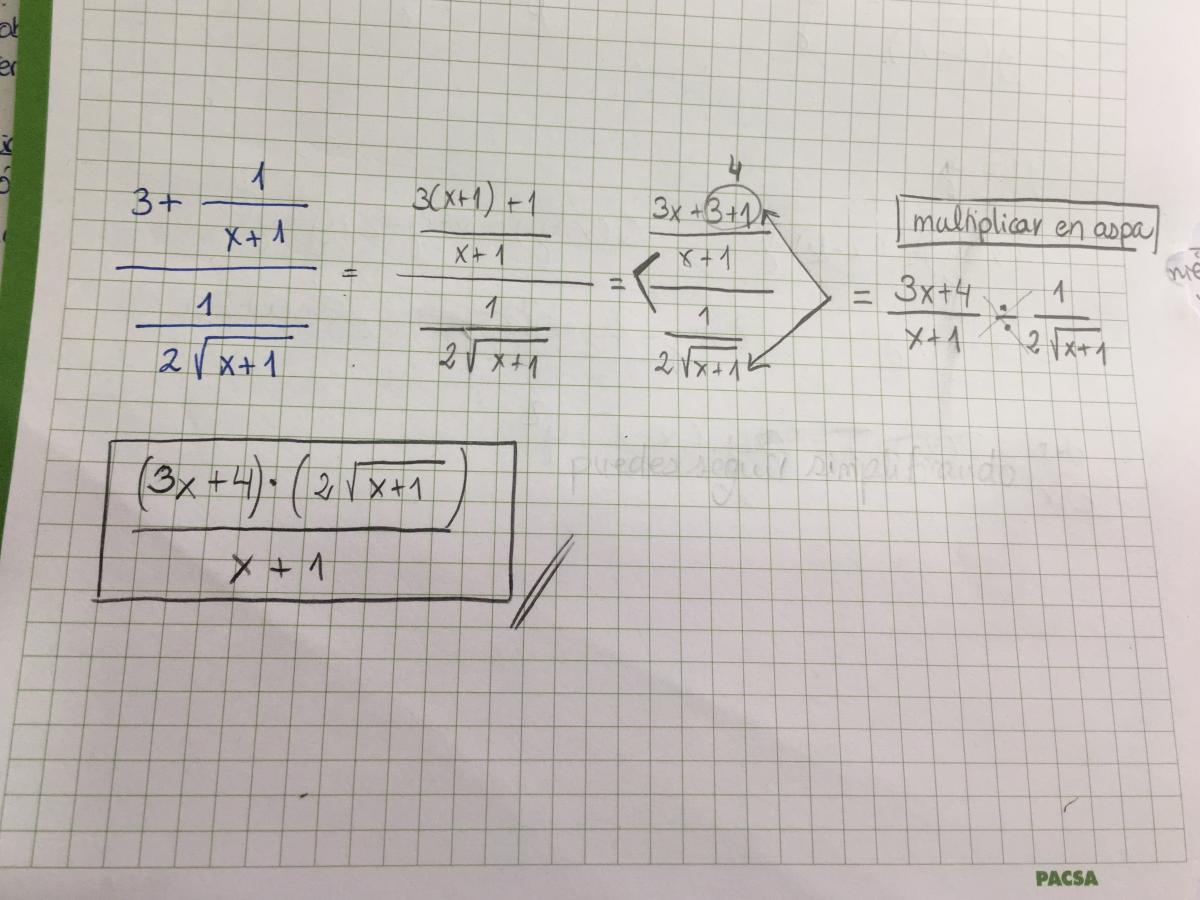 3 + 1/(x+1) / 1/(2√(x+1)) = 3(x+1)+1/(x+1) / 1/(2√(x+1)) = 3x+3+1/(x+1) / 1/(2√(x+1)) = (3x+4)/(x+1) ÷ 1/(2√(x+1))
4
multiplicar en aspa
(3x+4)·(2√(x+1)) / x+1
puedes seguir simplificando
PACSA